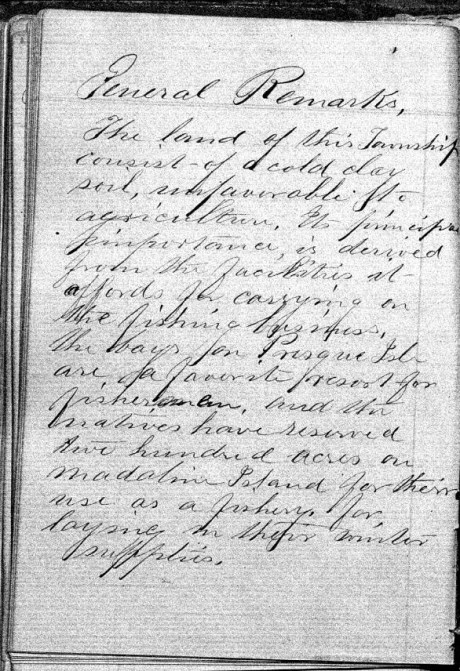 General Remarks.
The land of this Township
consist of a cold clay
soil, unfavorable to
agriculture. Its principal
importance, is derived
from the facilities it
affords for carrying on
the fishing business.
the bays on Presque Isle
are a favorite resort for
fishermen, and the
natives have reserved
two hundred acres on
Madaline Island for their
use as a fishery for
laying in their winter
supplies.